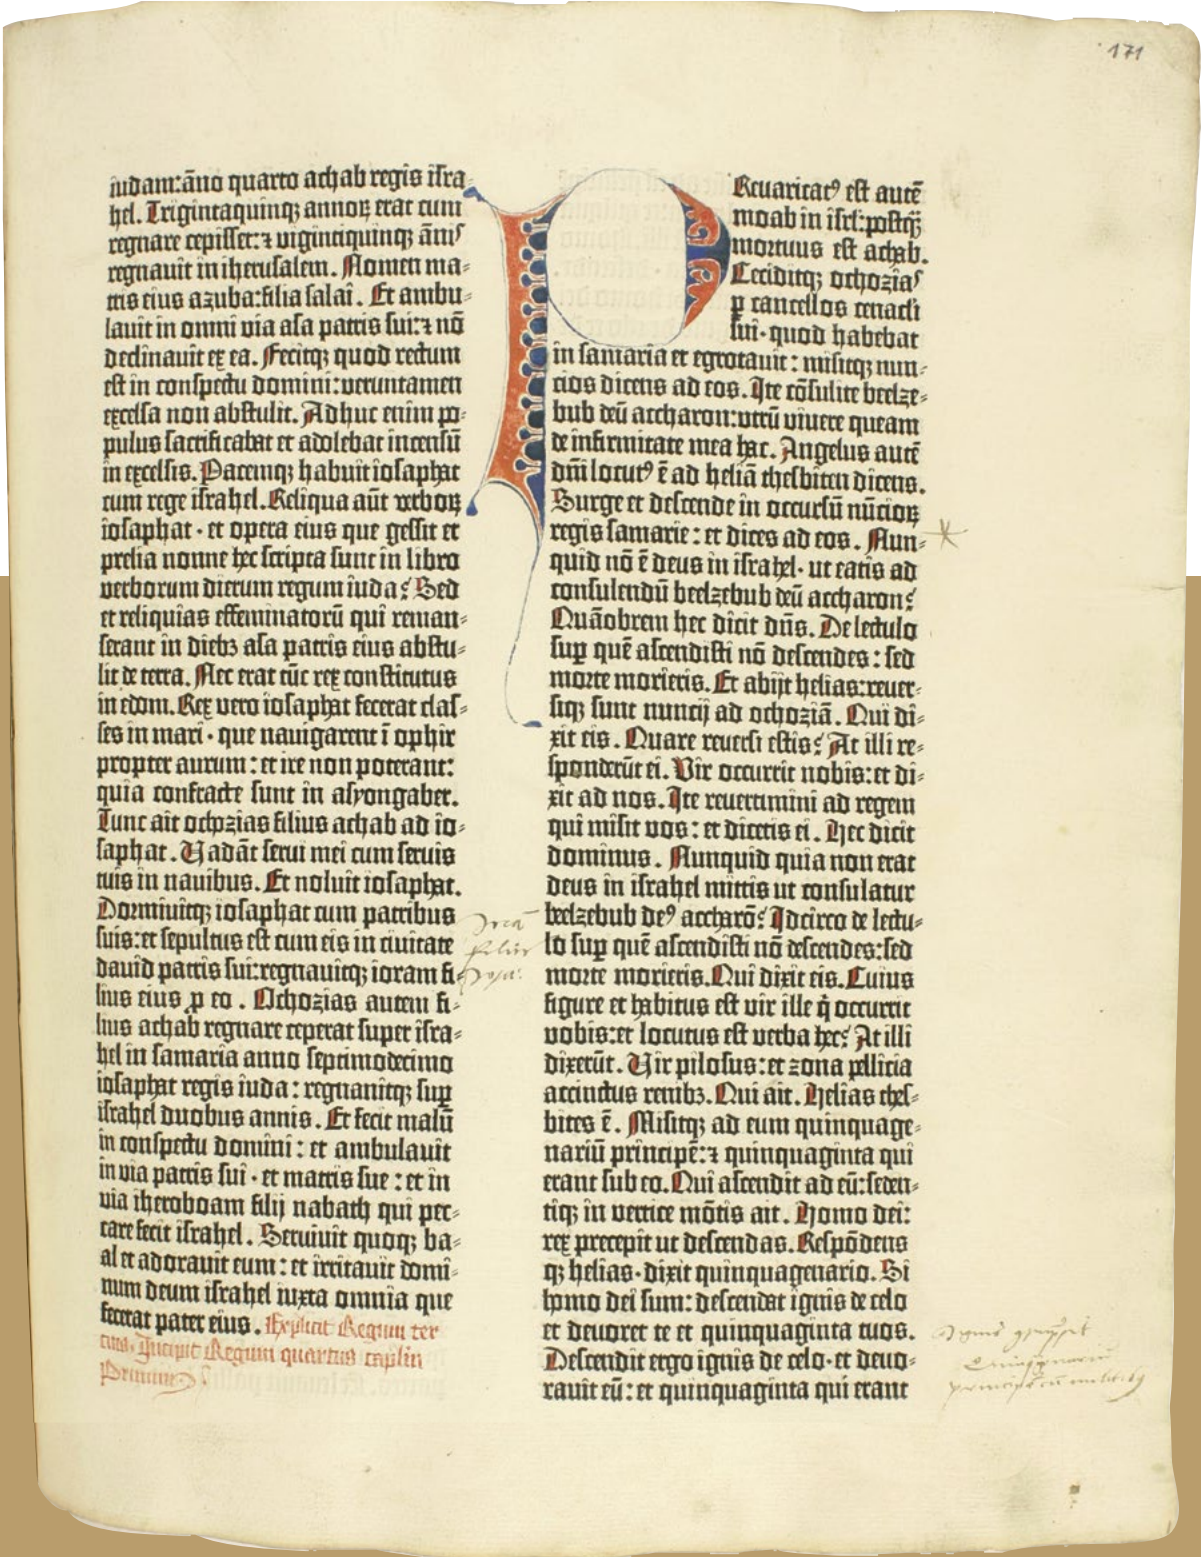 171
iudam: a̅no quarto achab regis isra-
hel. Trigintaquinqꝫ annoꝝ erat cum
regnare cepisset: ⁊ vigintiquinqꝫ a̅nis
regnauit in iherusalem. Nomen ma-
tris eius azuba: filia salai. Et ambu-
lauit in omni via asa patris sui: ⁊ no̅
declinauit ex ea. Fecitqꝫ quod rectum
est in conspectu domini: veruntamen
excelsa non abstulit. Adhuc enim po-
pulus sacrificabat et adolebat incensu̅
in excelsis. Pacemqꝫ habuit iosaphat
cum rege israhel. Reliqua au̅t verboꝝ
iosaphat · et opera eius que gessit et
prelia nonne hec scripta sunt in libro
verborum dierum regum iuda? Sed
et reliquias effeminatoru̅ qui reman-
serant in diebꝫ asa patris eius abstu-
lit de terra. Nec erat tu̅c rex constitutus
in edom. Rex vero iosaphat fecerat clas-
ses in mari · que nauigarent i̅ ophir
propter aurum: et ire non poterant:
quia confracte sunt in asyongaber.
Tunc ait ochozias filius achab ad io-
saphat. Vada̅t serui mei cum seruis
tuis in nauibus. Et noluit iosaphat.
Dormiuitqꝫ iosaphat cum patribus
suis: et sepultus est cum eis in ciuitate
dauid patris sui: regnauitqꝫ ioram fi-
lius eius ꝓ eo. Ochozias autem fi-
lius achab regnare ceperat super isra-
hel in samaria anno septimodecimo
iosaphat regis iuda: regnauitqꝫ suꝑ
israhel duobus annis. Et fecit malu̅
in conspectu domini: et ambulauit
in via patris sui · et matris sue: et in
via iheroboam filij nabath qui pec-
care fecit israhel. Seruiuit quoqꝫ ba-
al et adorauit eum: et irritauit domi-
num deum israhel iuxta omnia que
fecerat pater eius. Explicit Regum ter
cius. Incipit Regum quartus caplm
Primum
PReuaricatꝰ est aute̅
moab in isrl: postq̅ꝫ
mortuus est achab.
Ceciditqꝫ ochozias
ꝑ cancellos cenacli
sui · quod habebat
in samaria et egrotauit: misitqꝫ nun-
cios dicens ad eos. Ite co̅sulite beelze-
bub deu̅ accharon: vtru̅ viuere queam
de infirmitate mea hac. Angelus aute̅
dn̅i locutꝰ e̅ ad helia̅ thesbiten dicens.
Surge et descende in occursu̅ nu̅cioꝝ
regis samarie: et dices ad eos. Nun-
quid no̅ e̅ deus in israhel · ut eatis ad
consulendu̅ beelzebub deu̅ accharon?
Qua̅obrem hec dicit dn̅s. De lectulo
suꝑ que̅ ascendisti no̅ descendes: sed
morte morieris. Et abijt helias: reuer-
siqꝫ sunt nuncij ad ochozia̅. Qui di-
xit eis. Quare reuersi estis? At illi re-
sponderu̅t ei. Vir occurrit nobis: et di-
xit ad nos. Ite reuertimini ad regem
qui misit vos: et dicetis ei. Hec dicit
dominus. Nunquid quia non erat
deus in israhel mittis ut consulatur
beelzebub deꝰ accharo̅? Idcirco de lectu-
lo suꝑ que̅ ascendisti no̅ descendes: sed
morte morieris. Qui dixit eis. Cuius
figure et habitus est vir ille q̇ occurrit
vobis: et locutus est verba hec? At illi
dixeru̅t. Vir pilosus: et zona pellicia
accinctus renibꝫ. Qui ait. Helias thes-
bites e̅. Misitqꝫ ad eum quinquage-
nariu̅ principe̅: ⁊ quinquaginta qui
erant sub eo. Qui ascendit ad eu̅: seden-
tiqꝫ in vertice mo̅tis ait. Homo dei:
rex precepit ut descendas. Respo̅dens
qꝫ helias · dixit quinquagenario. Si
homo dei sum: descendat ignis de celo
et deuoret te et quinquaginta tuos.
Descendit ergo ignis de celo · et deuo-
rauit eu̅: et quinquaginta qui erant